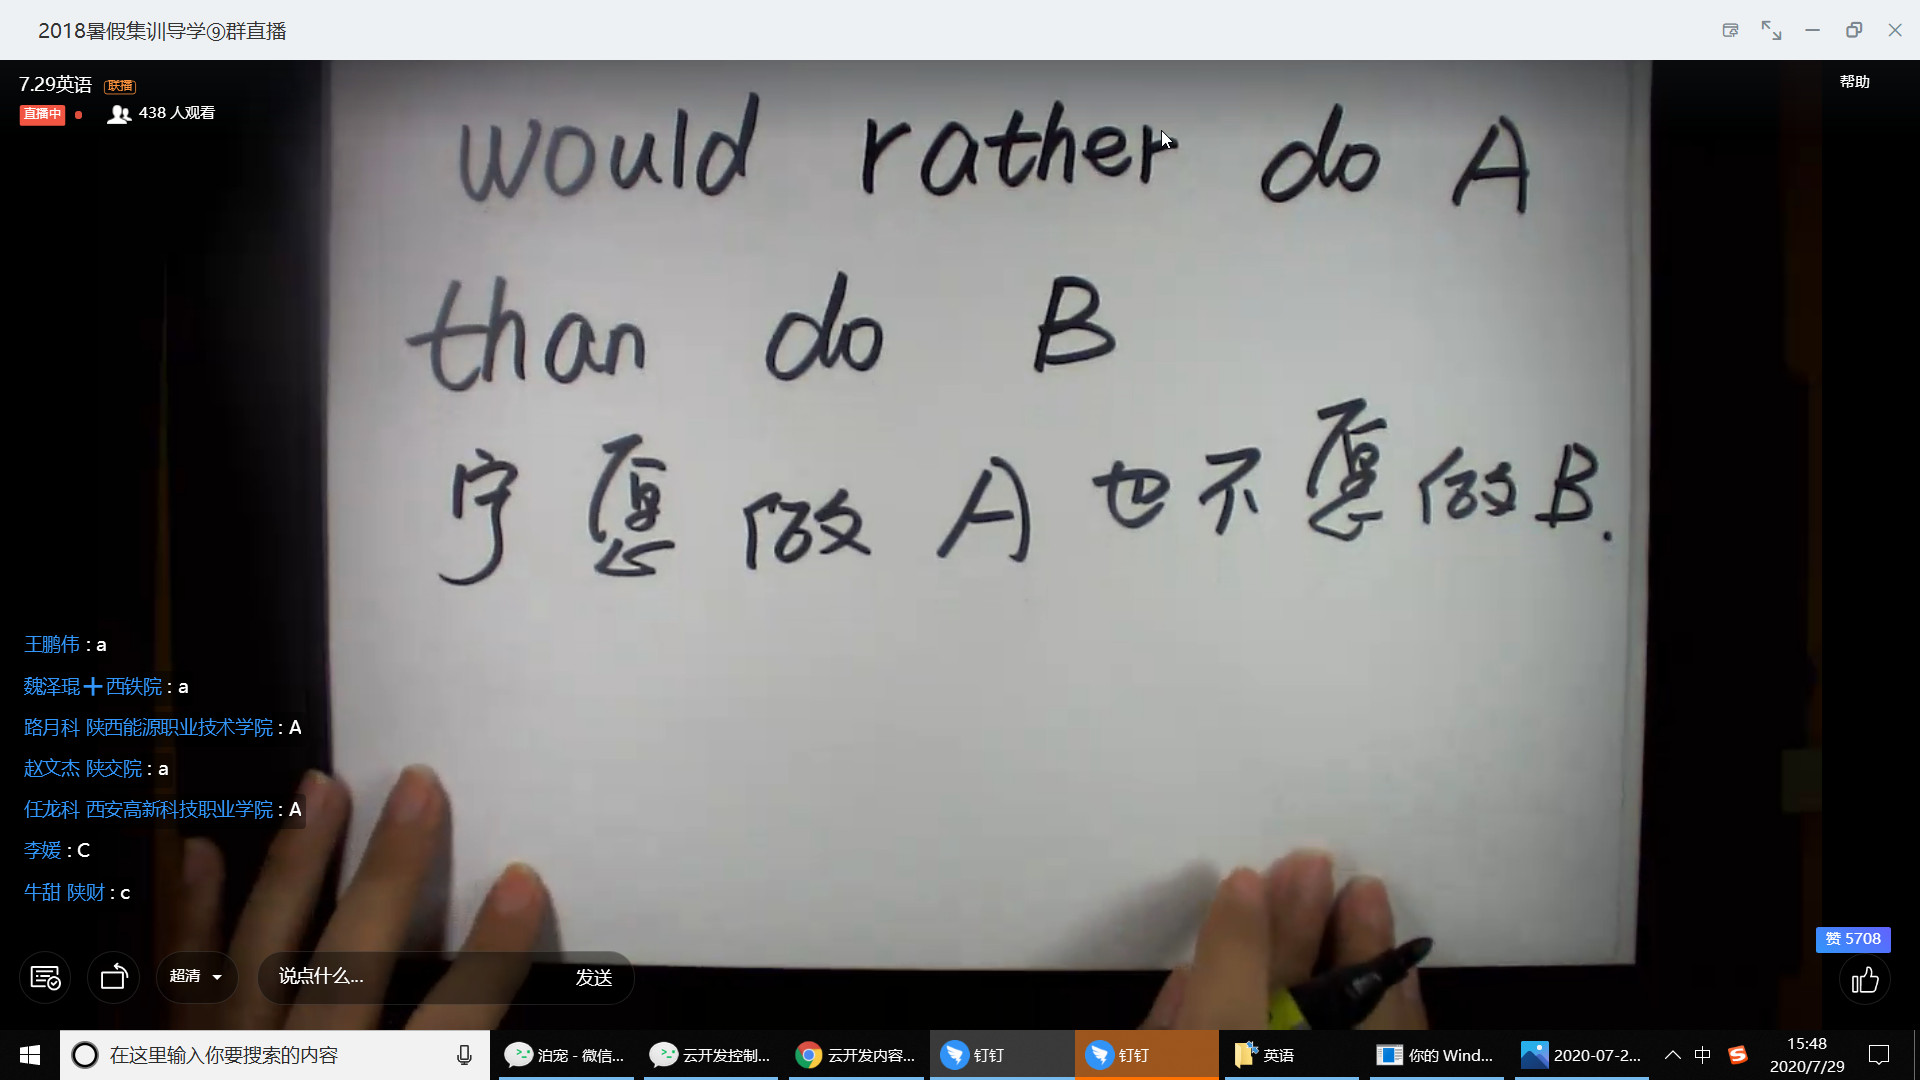 2018暑假集训导学⑨群直播
7.29英语 联播
直播中 438 人观看
帮助
would rather do A
than do B
宁愿做A也不愿做B.
王鹏伟 : a
魏泽琨十西铁院 : a
路月科 陕西能源职业技术学院 : A
赵文杰 陕交院 : a
任龙科 西安高新科技职业学院 : A
李媛 : C
牛甜 陕财 : c
赞 5708
超清 说点什么... 发送
在这里输入你要搜索的内容 泊宠 - 微信... 云开发控制... 云开发内容... 钉钉 钉钉 英语 你的 Wind... 2020-07-2... 中 15:48
2020/7/29